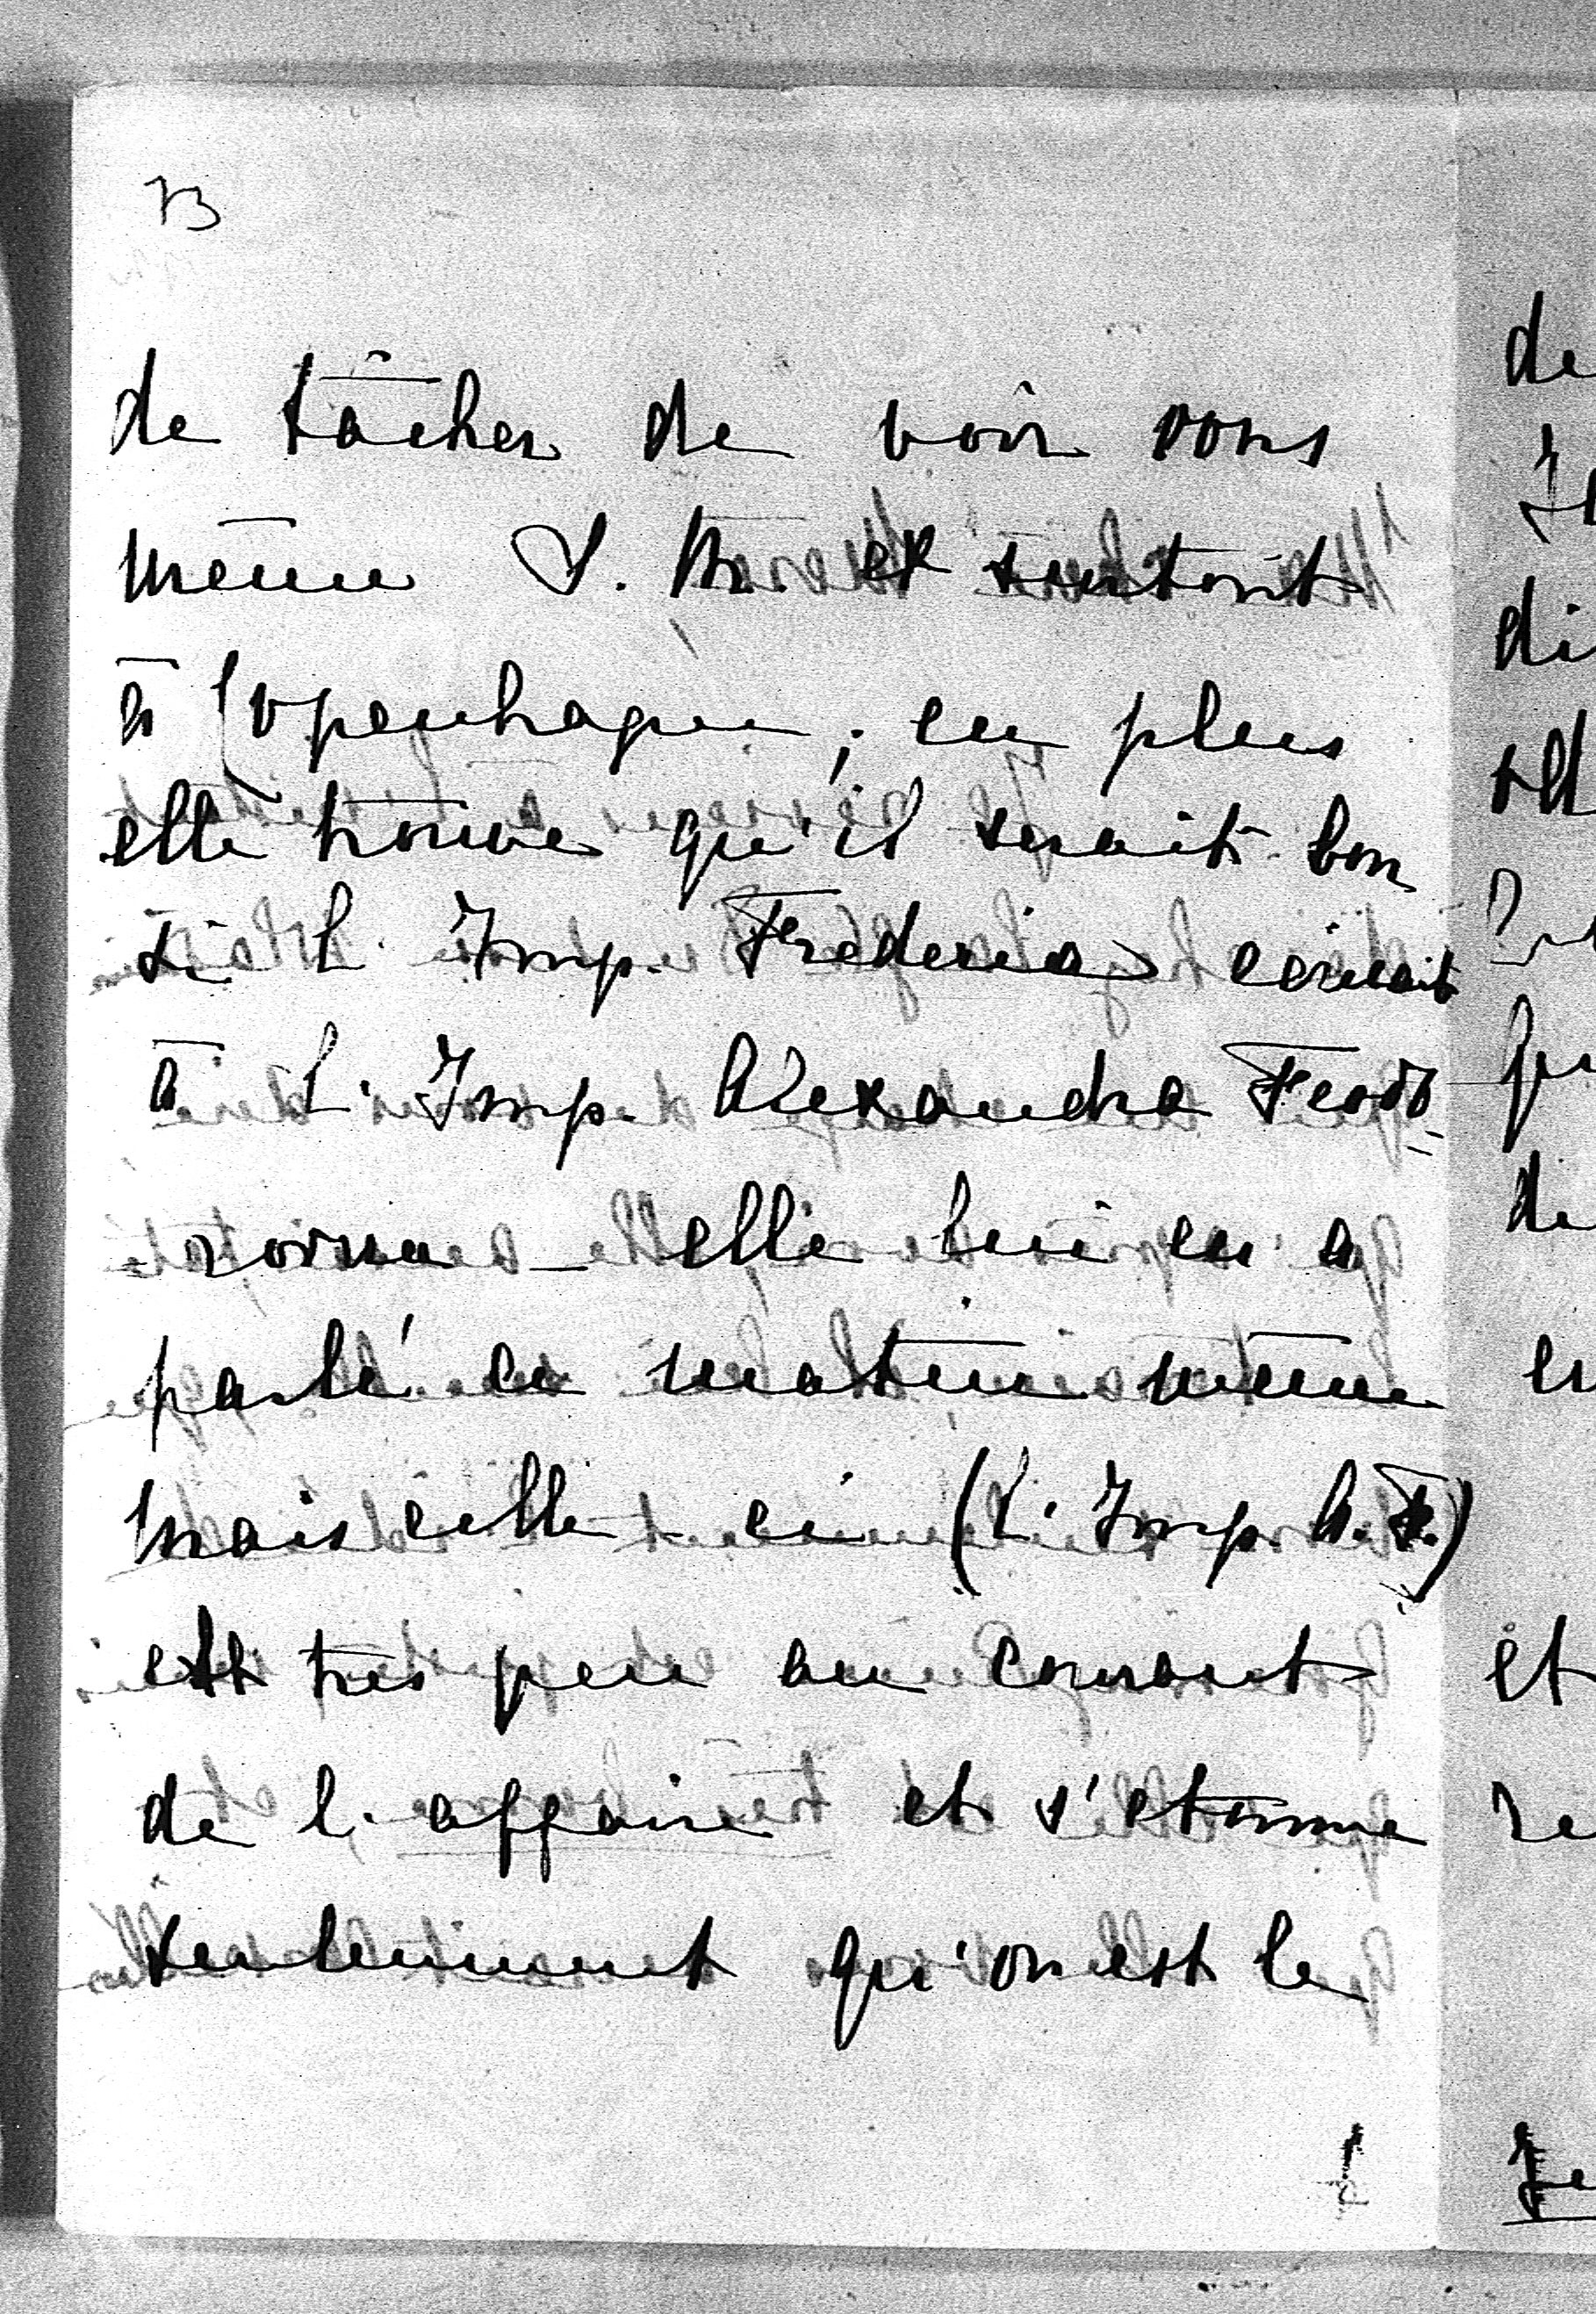 13
de tâcher de voir vous
même S. M. et surtout
à Copenhague; en plus
elle trouve qu'il serait bon
si l'Imp. Frederic ecrivait
à L'Imp. Alexandra Feodo=
=rovna – elle lui en a
parlé ce matin même
mais celle-ci (L'Imp. A. F.)
est très peu au courant
de l'affaire et s'etonne
seulement qu'on est le